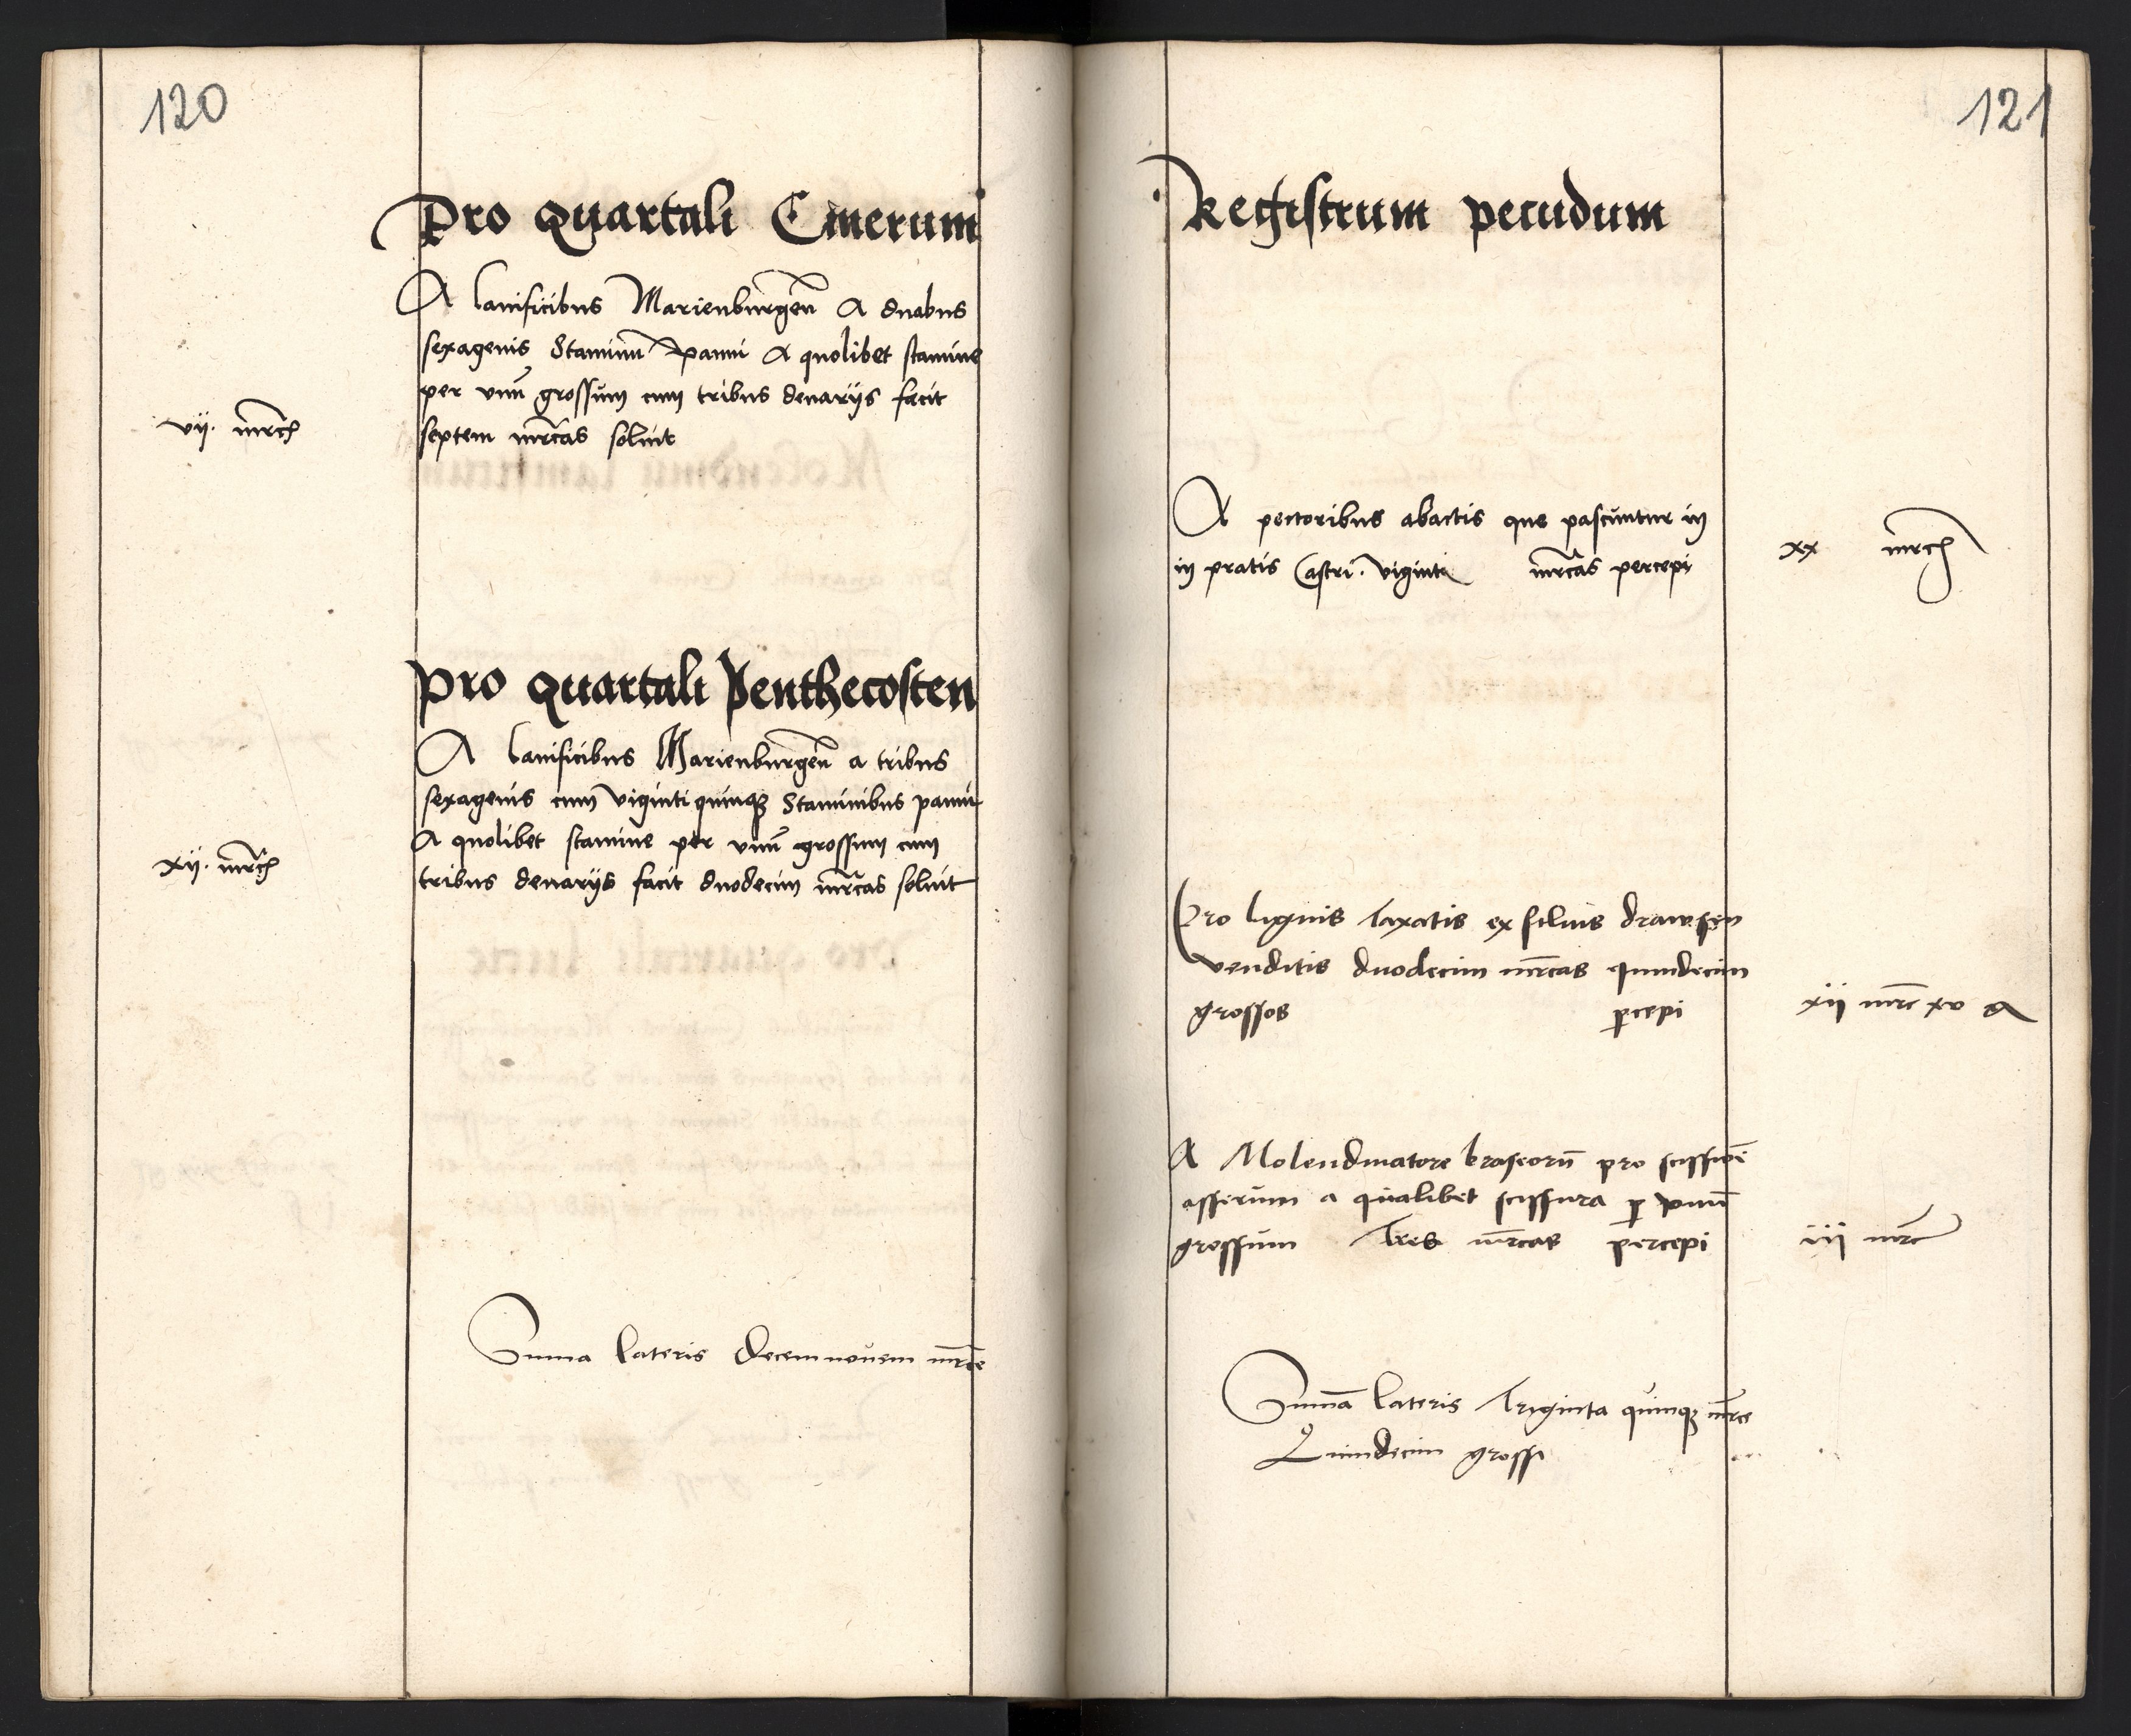 120
Pro quartali Cinerum
A lanificibus Marienburgen̄ A duabus
sexagenis Staminū panni A quolibet stamine
per vnū grossum cum tribus denarijs facit
vij. mrc̄
septem mrcas soluit
Pro quartali Penthecosten
A lanificibus Marienburgen̄ a tribus
sexagenis cum viginti quinq₃ Staminibus panni
A quolibet stamine per vnū grossum cum
xij. mrc̄
tribus denarijs facit duodecim mrcas soluit
Suma lateris Decemnouem mrce
121
Registrum pecudum
A pectoribus abactis que pascuntur in
in pratis Castri. viginti mrcas percepi
xx mrc̄
Pro lignis taxatis ex siluis drawsen
venditis duodecim mrcas quindecim
grossos ꝑcepi
xij mrc xv
A Molendinatore braseorū pro scissiōe
asserum a qualibet scissura ꝑ vnum̄
grossum Tres mrcas percepi
iij mrc
Sum̄a lateris Triginta quinq₃ mrce
Quindecim grossi